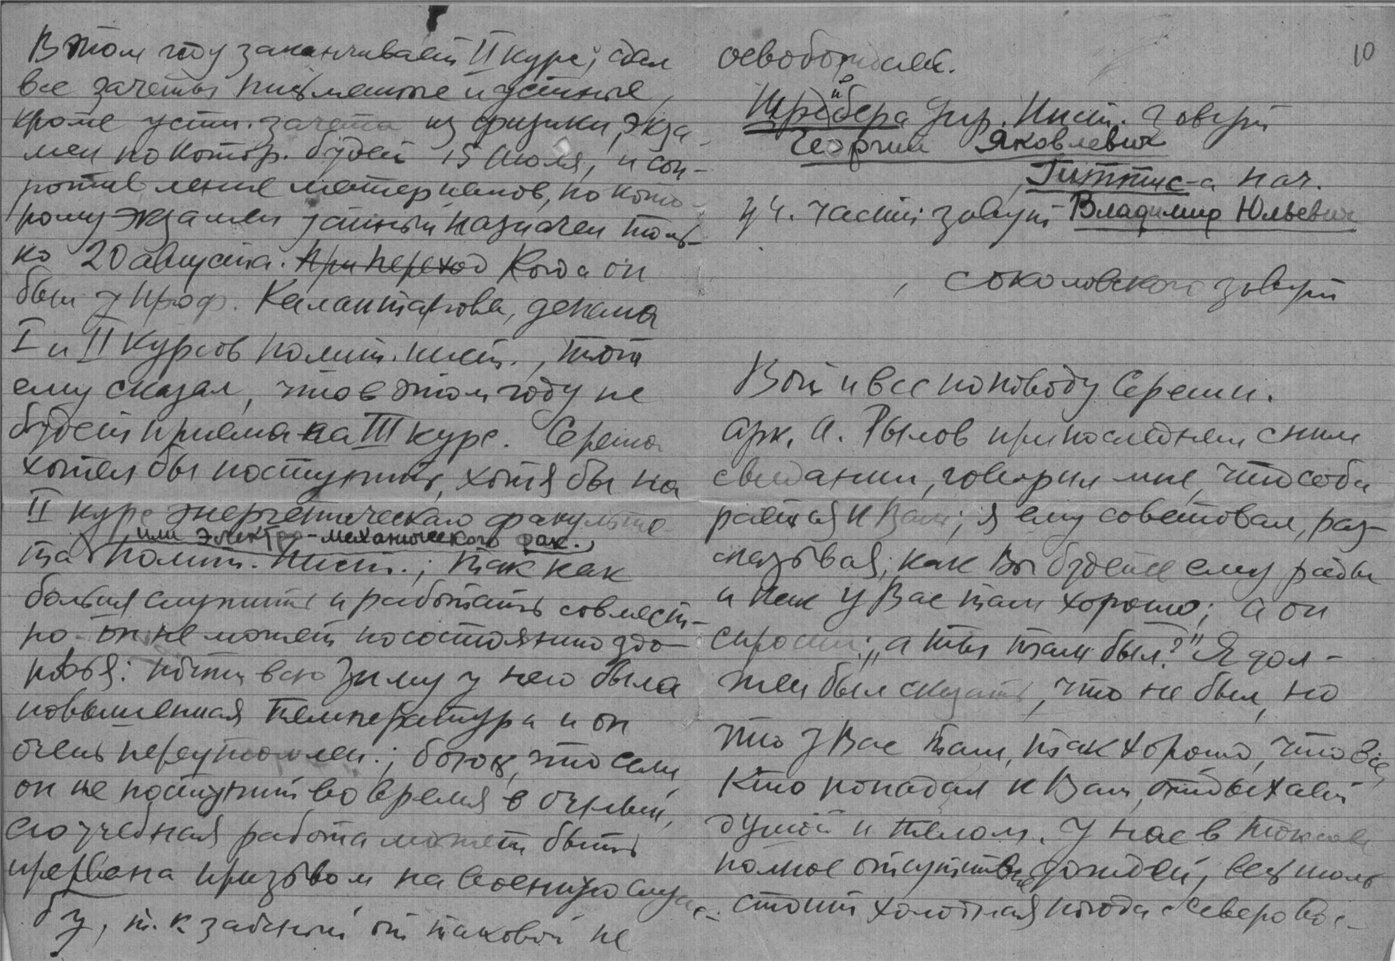 В этом году заканчивает II курс; сдал
все зачеты письменные и устные,
кроме устн. зачета из физики, экза-
мен по котор. будет 15 июля, и соп-
ротивление материалов, по кото-
рому экзамен устный назначен толь-
ко 20 августа. При переход Когда он
был у проф. Калантарова, декана
I и II курсов полит. инст., тот
ему сказал, что в этом году не
будет приема на III курс. Сережа
хотел бы поступить, хотя бы на
II курс энергетического факульте-
или электро-механического фак.,
та полит. инст.; так как
больше служить и работать совмест-
но он не может по состоянию здо-
ровья: почти всю зиму у него была
повышенная температура и он
очень переутомлен; боюсь, что если
он не поступит во время в очный,
его учебная работа может быть
прервана призывом на военную служ-
бу, т.к. заочный от таковой не
освобождает.
10
Шрейбера дир. Инст. зовут
Георгий Яковлевич
Гиттис-а нач.
уч. части зовут Владимир Юльевич
Соколовского зовут
Вот и все по поводу Сережи.
Арк. А. Рылов при последнем с ним
свидании, говорил мне, что соби
рается к Вам; я ему советовал, рас-
сказывая, как Вы будете ему рады
и как у Вас там хорошо; а он
спросил: „а ты там был?" Я дол-
жен был сказать, что не был, но
что у Вас там, так хорошо, что все,
кто попадал к Вам, отдыхает
душой и телом. У нас в Токсове
полное отсутствие дождей, весь
стоит холодная погода с северо вос-